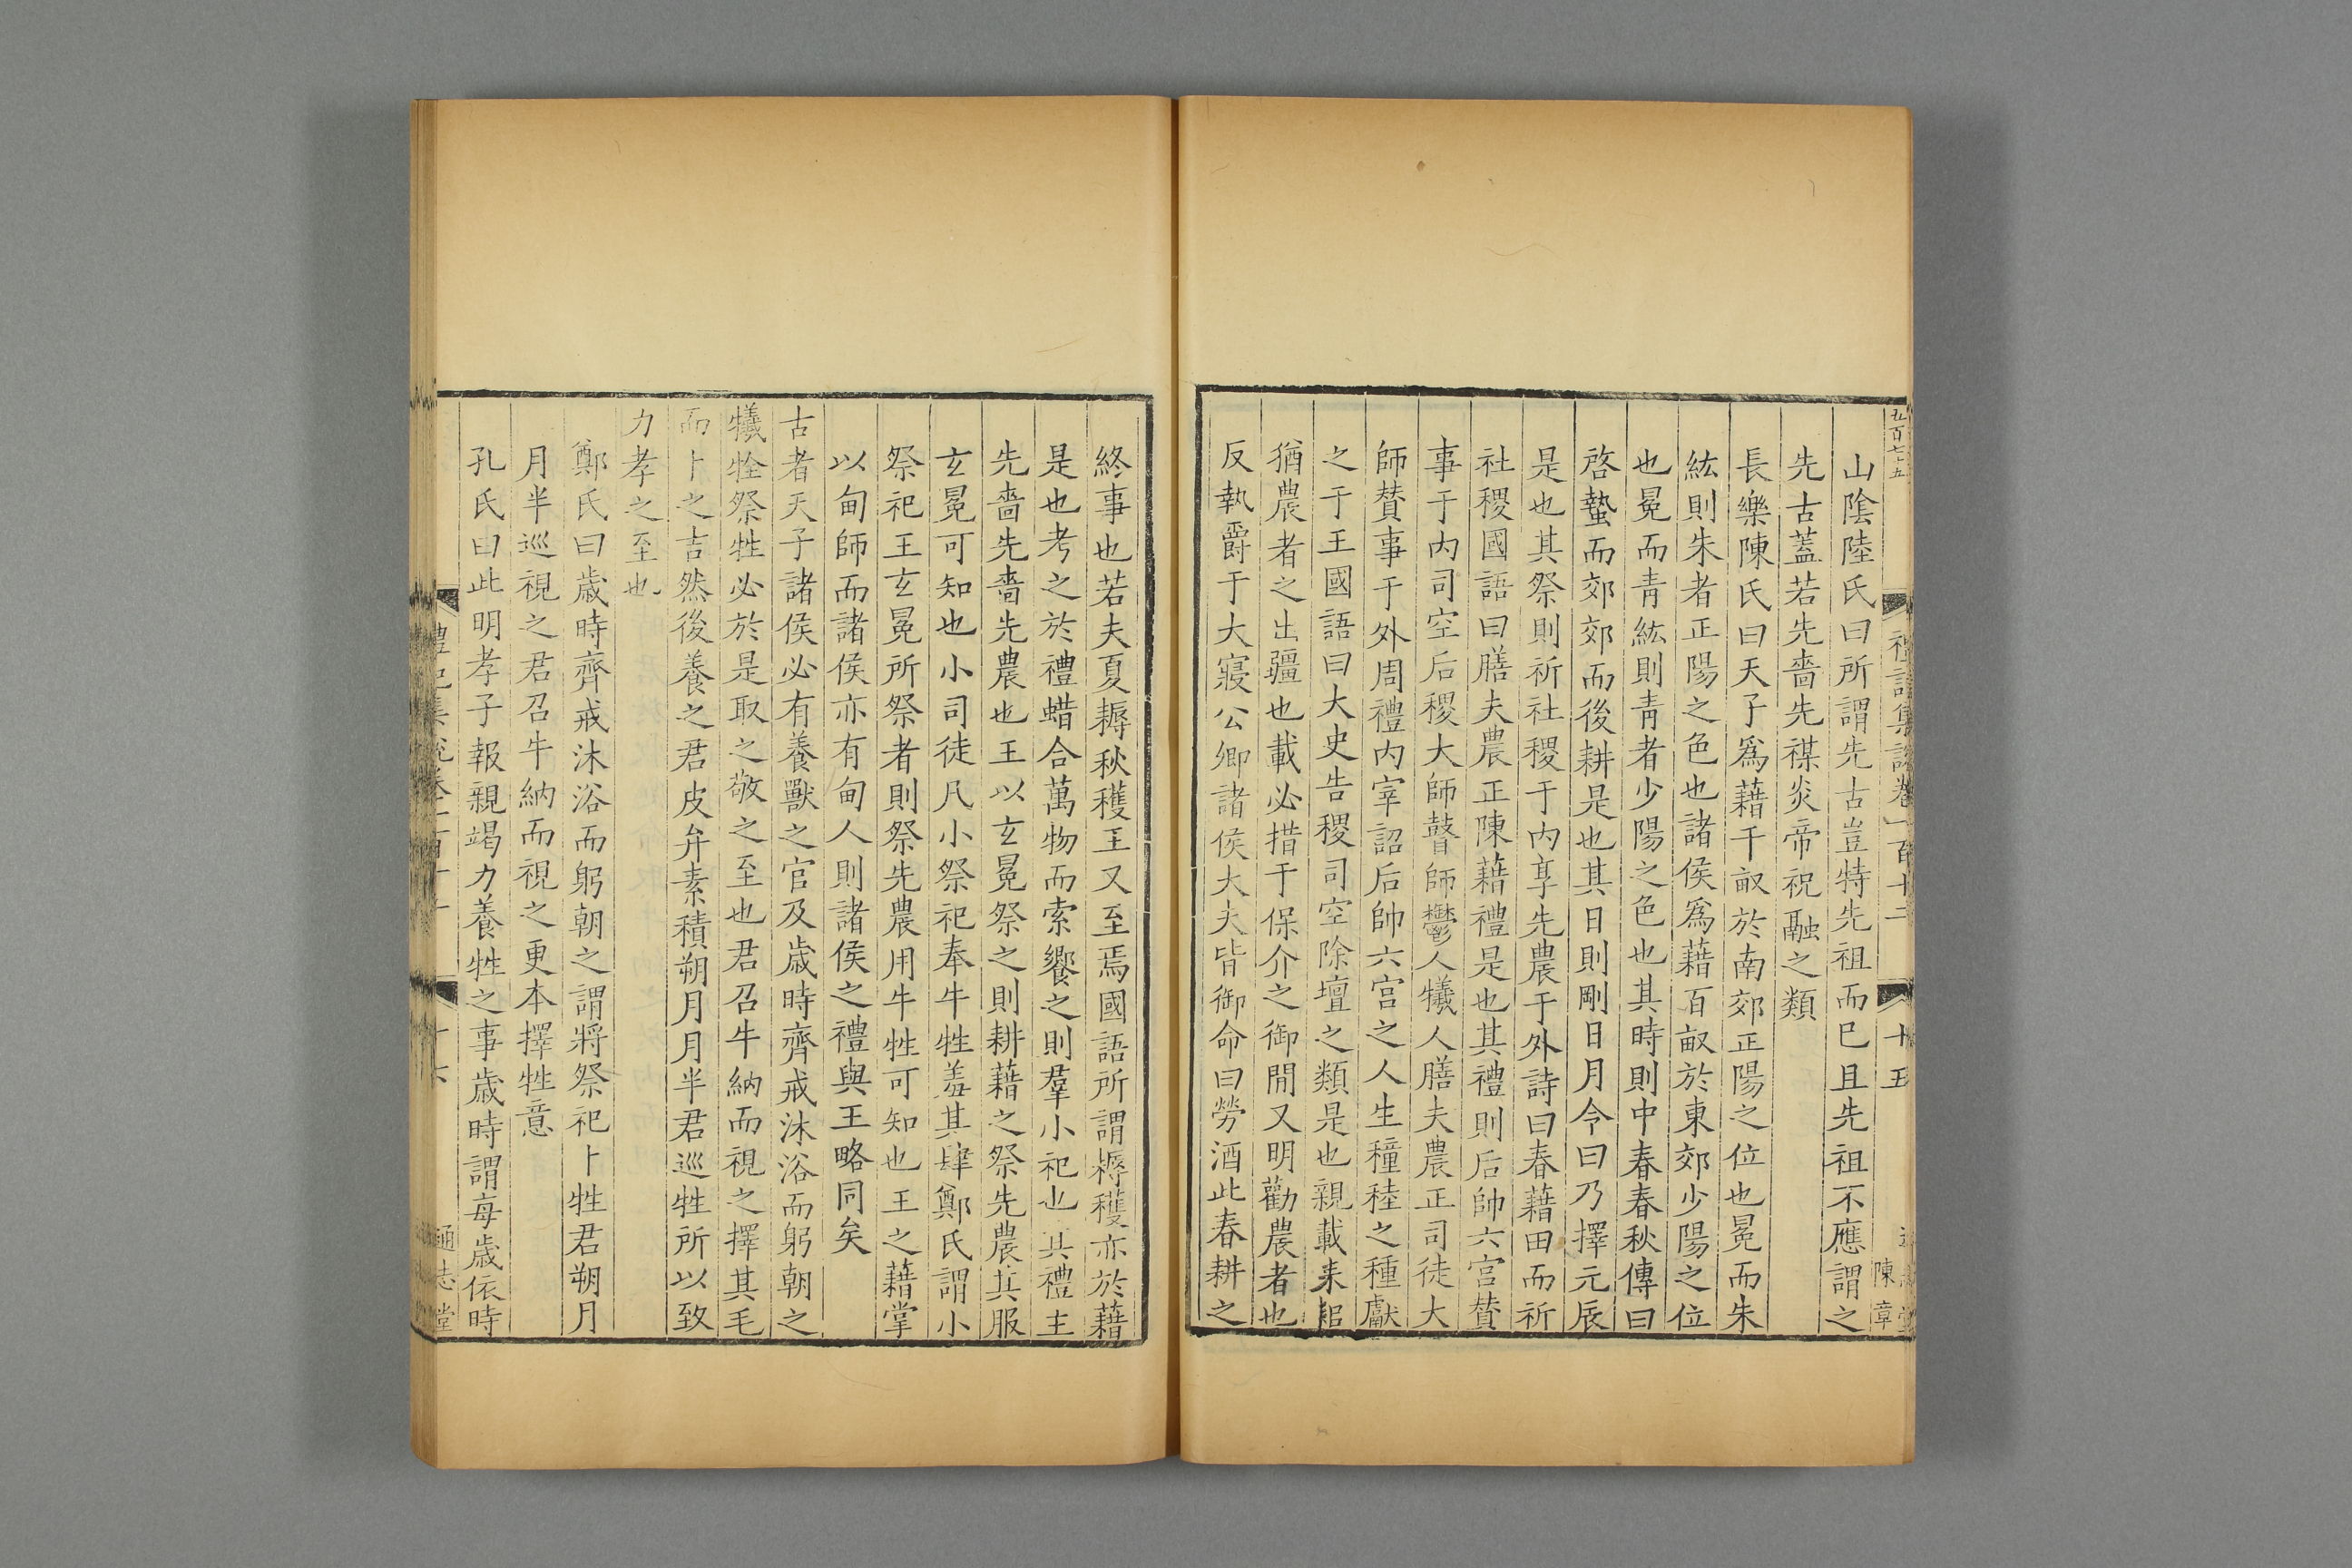 五百七十五
禮記集說卷一百十二
十五
陳章
山陰陸氏曰所謂先古豈特先祖而已且先祖不應謂之
先古蓋若先嗇先禖炎帝祝融之類
長樂陳氏曰天子爲藉千畝於南郊正陽之位也冕而朱
紘則朱者正陽之色也諸侯爲藉百畝於東郊少陽之位
也冕而靑紘則靑者少陽之色也其時則中春春秋傳曰
啓蟄而郊郊而後耕是也其日則剛日月令曰乃擇元辰
是也其祭則祈社稷于內享先農于外詩曰春藉田而祈
社稷國語曰膳夫農正陳藉禮是也其禮則后帥六宮贊
事于內司空后稷大師瞽師鬱人犧人膳夫農正司徒大
師贊事于外周禮內宰詔后帥六宮之人生穜稑之種獻
之于王國語曰大史告稷司空除壇之類是也親載耒耜
猶農者之出疆也載必措于保介之御閒又明勸農者也
反執爵于大寢公卿諸侯大夫皆御命曰勞酒此春耕之
終事也若夫夏耨秋穫王又至焉國語所謂耨穫亦於藉
是也考之於禮蜡合萬物而索饗之則羣小祀也其禮主
先嗇先嗇先農也王以玄冕祭之則耕藉之祭先農其服
玄冕可知也小司徒凡小祭祀奉牛牲羞其肆鄭氏謂小
祭祀王玄冕所祭者則祭先農用牛牲可知也王之藉掌
以甸師而諸侯亦有甸人則諸侯之禮與王略同矣
古者天子諸侯必有養獸之官及歲時齊戒沐浴而躬朝之
犧牷祭牲必於是取之敬之至也君召牛納而視之擇其毛
而卜之吉然後養之君皮弁素積朔月月半君巡牲所以致
力孝之至也
鄭氏曰歲時齊戒沐浴而躬朝之謂將祭祀卜牲君朔月
月半巡視之君召牛納而視之更本擇牲意
孔氏曰此明孝子報親竭力養牲之事歲時謂每歲依時
通志堂